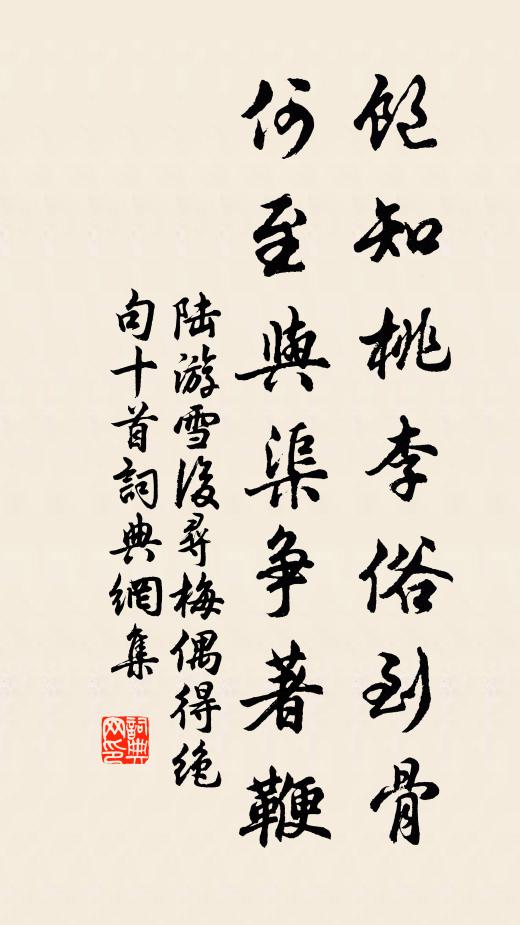 飽知桃李俗到骨
何至與渠争著鞭
陸游雪後尋梅偶得絶
句十首詞典網集
詞典
网印